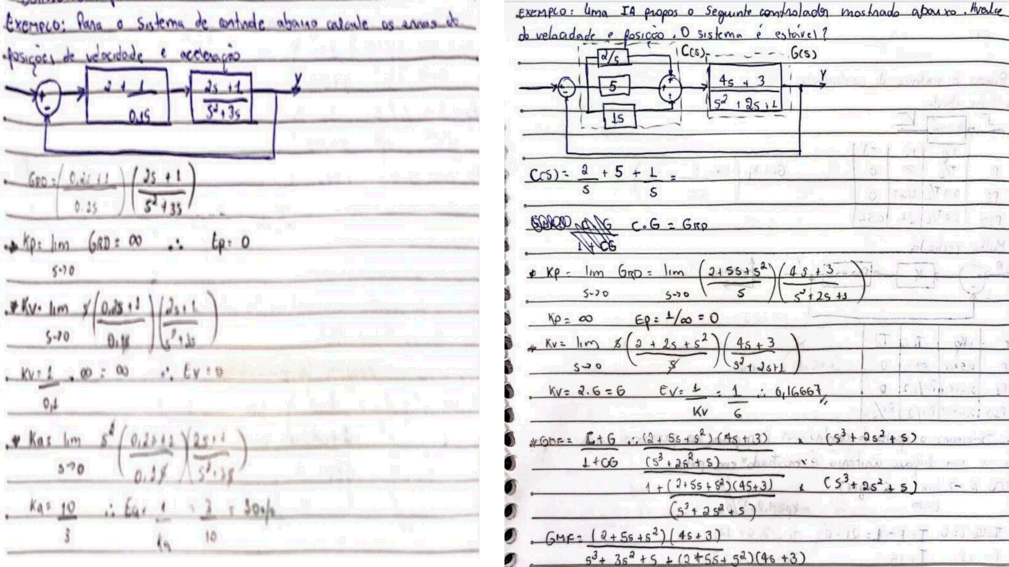 Exemplo: Para o sistema de controle abaixo calcule os erros de
posições de velocidade e aceleração
2 + 1
0,1s
2s + 1
s² + 3s
Y
GRD = (0,2s+1 / 0.1s) (2s + 1 / s² + 3s)
* Kp = lim GRD = ∞ ∴ Ep = 0
s→0
* Kv = lim s (0,2s+1 / 0,1s) (2s+1 / s²+3s)
s→0
Kv = 1 / 0,1 . ∞ = ∞ ∴ Ev = 0
* Ka = lim s² (0,2s+1 / 0.1s) (2s+1 / s²+3s)
s→0
Ka = 10 / 3 ∴ Ea = 1 / Ka = 3 / 10 = 30%
Exemplo: Uma IA propos o seguinte controlador mostrado abaixo. Avalie
de velocidade e posição. O sistema é estavel?
C(s) G(s)
2/s
5
1s
4s + 3
s² + 2s + 1
Y
C(s) = 2/s + 5 + 1/s =
C.G = GRD
* Kp = lim GRD = lim (2+5s+s² / s) (4s+3 / s²+2s+1)
s→0 s→0
Kp = ∞ Ep = 1/∞ = 0
* Kv = lim s (2 + 2s + s² / s) (4s + 3 / s² + 2s+1)
s→0
Kv = 2.6 = 6 Ev = 1 / Kv = 1 / 6 ∴ 0,16667
* GMF = C+G / 1+CG ∴ (2+5s+s²)(4s+3) / (s³+2s²+s) . (s³+2s²+s)
1+(2+5s+s²)(4s+3) / (s³+2s²+s) . (s³+2s²+s)
GMF = (2+5s+s²)(4s+3)
s³+3s²+s+(2+5s+s²)(4s+3)